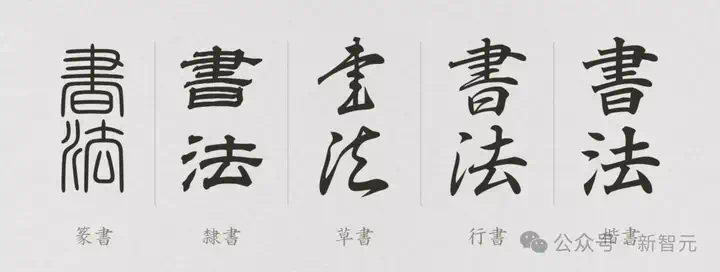 書法
書法
書法
書法
書法
篆書
隸書
草書
行書
楷書
公众号 · 新智元